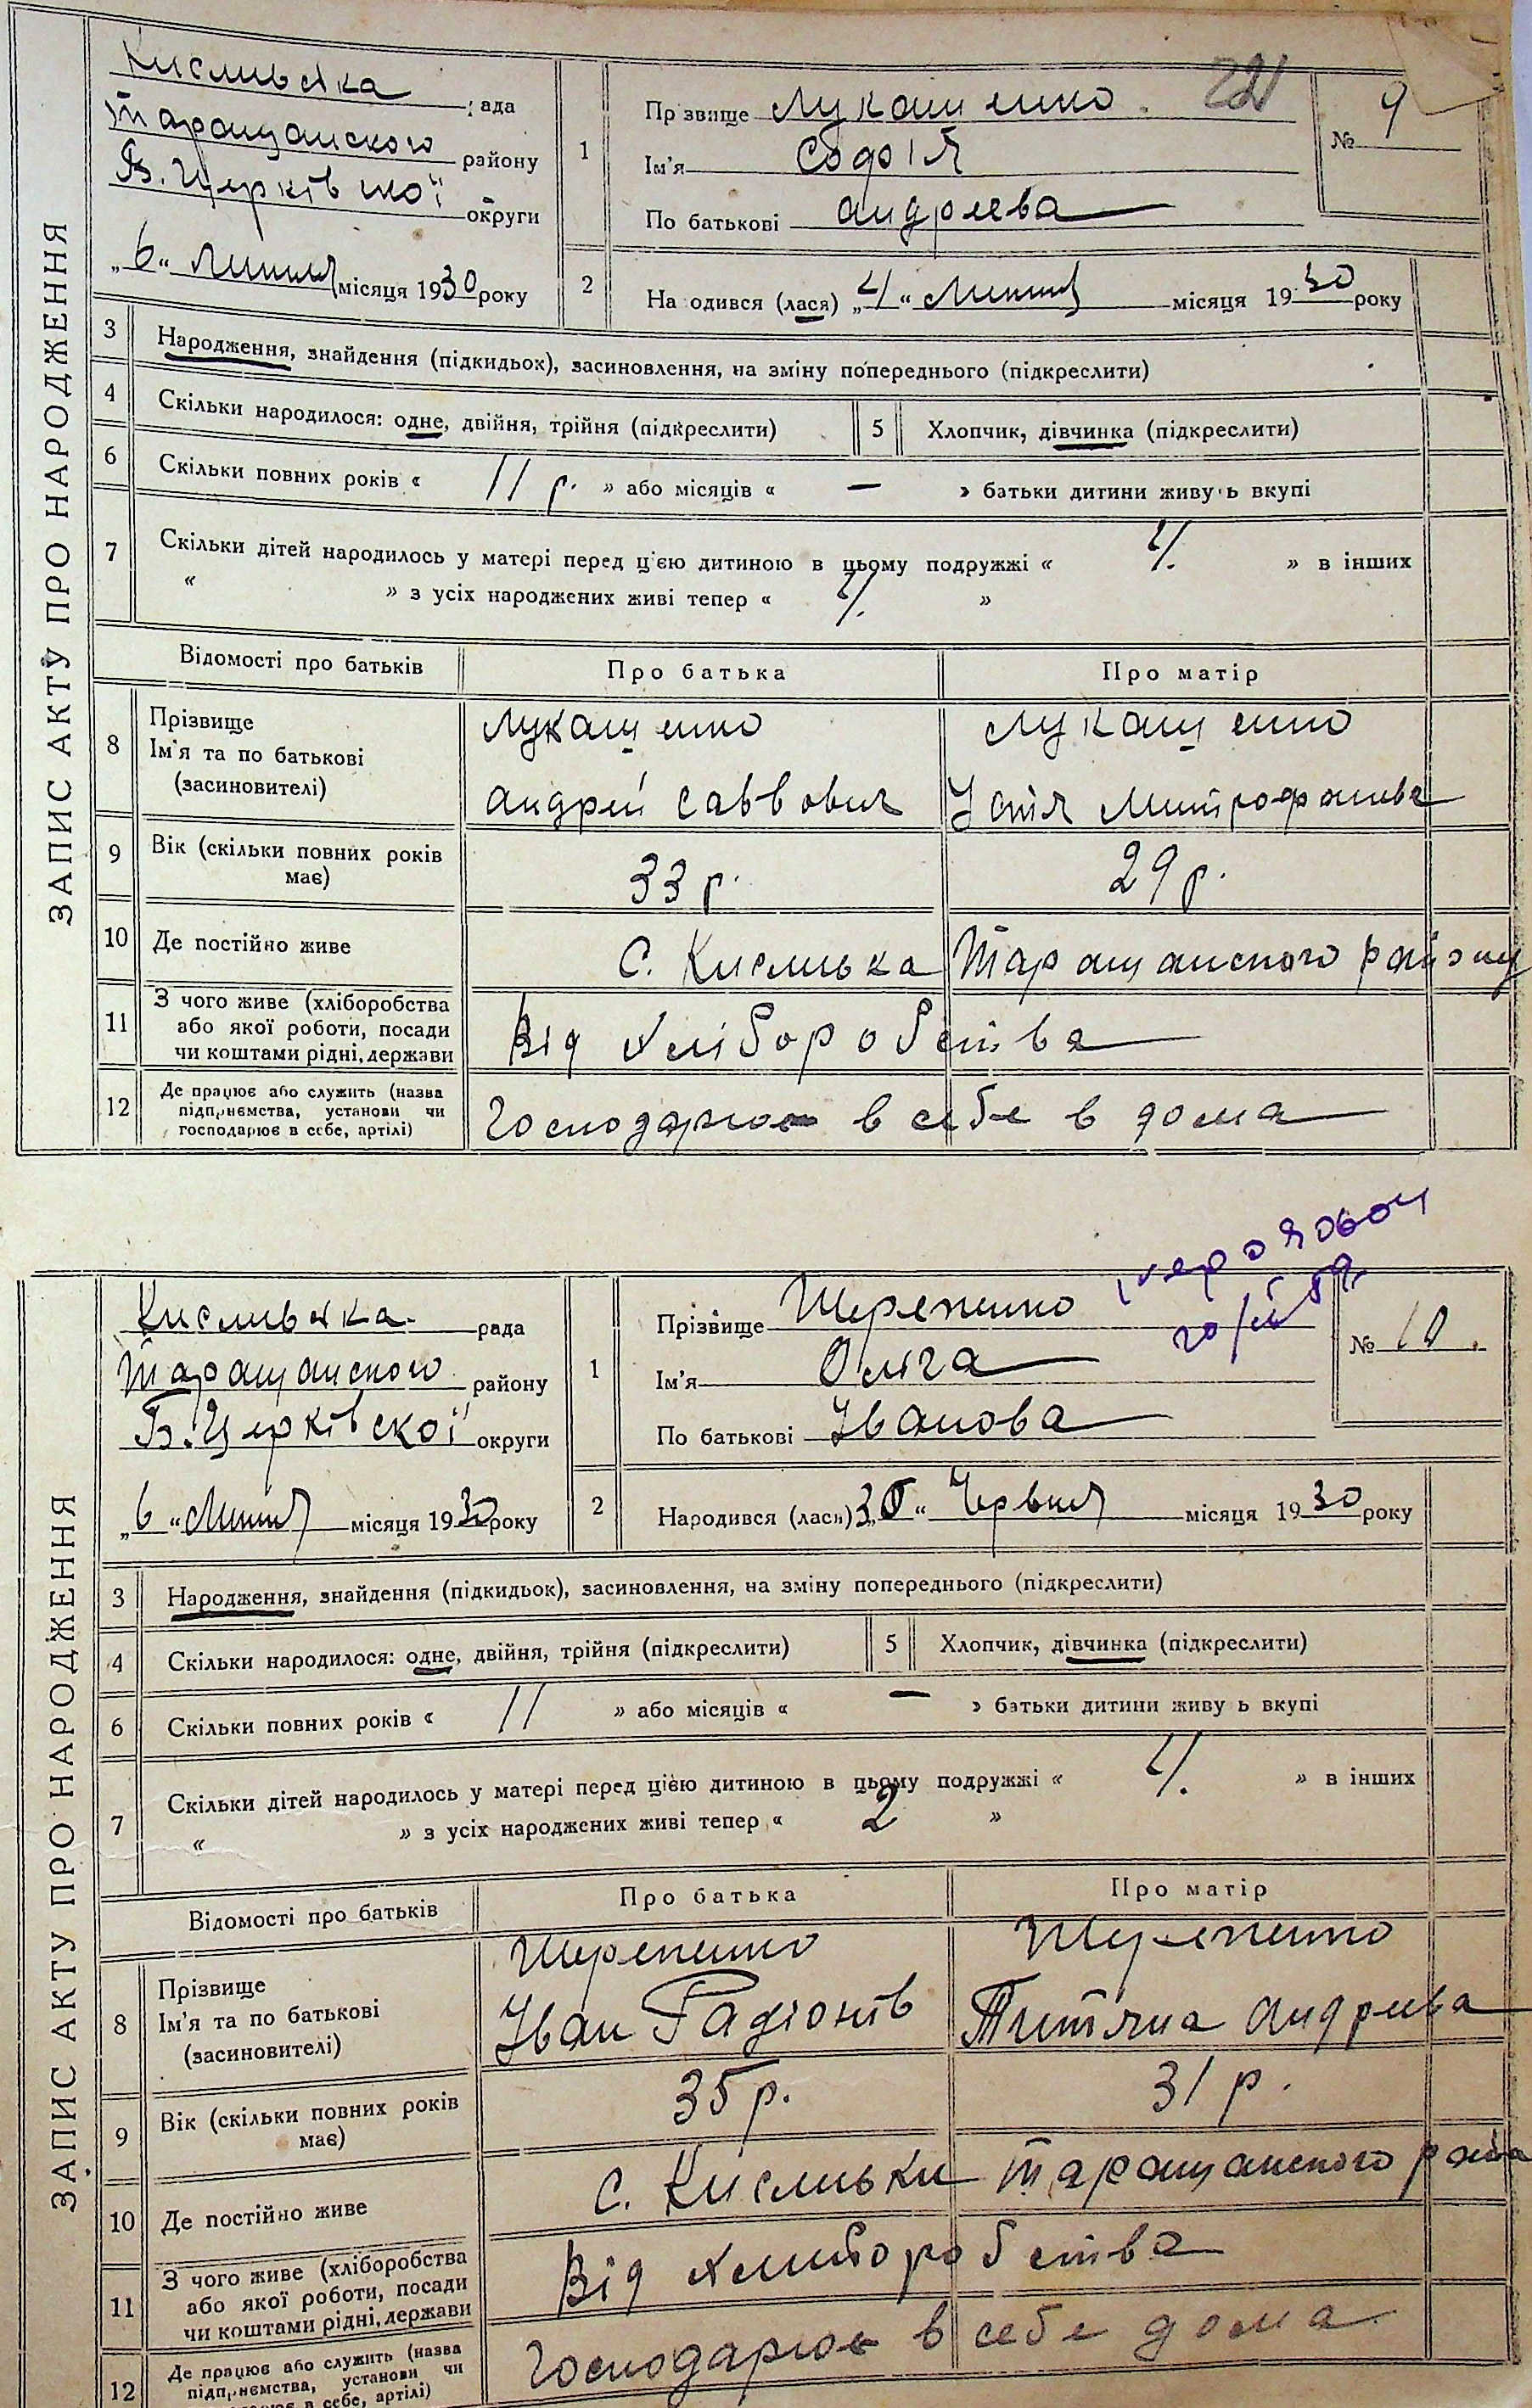 ЗАПИС АКТУ ПРО НАРОДЖЕННЯ
Кисливська рада
Таращанского району
Б. Церківської округи
„6“ Липня місяця 1930 року
1
Прізвище Лукащенко
Ім'я Софія
По батькові Андреева
22
№ 9
2
Народився (лася) „4“ Липня місяця 1930 року
3 Народження, знайдення (підкидьок), засиновлення, на зміну попереднього (підкреслити)
4 Скільки народилося: одне, двійня, трійня (підкреслити) 5 Хлопчик, дівчинка (підкреслити)
6 Скільки повних років « 11 р. » або місяців « — » батьки дитини живуть вкупі
7 Скільки дітей народилось у матері перед цією дитиною в цьому подружжі « 4. » в інших
« » з усіх народжених живі тепер « 4. »
Відомості про батьків Про батька Про матір
8 Прізвище Лукащенко Лукащенко
Ім'я та по батькові
(засиновителі) Андрій Саввович Устія Митрофанива
9 Вік (скільки повних років має) 33 р. 29 р.
10 Де постійно живе С. Кисливка Таращанского району
11 З чого живе (хліборобства
або якої роботи, посади
чи коштами рідні, держави Від хліборобства
12 Де працює або служить (назва
підприємства, установи чи
господарює в себе, артілі) Господарює в себе в дома
20/III 59.
ЗАПИС АКТУ ПРО НАРОДЖЕННЯ
Кисливська рада
Таращанского району
Б. Церківської округи
„6“ Липня місяця 1930 року
1
Прізвище Шерепенко
Ім'я Оліга
По батькові Іванова
№ 10.
2
Народився (лася) „30“ Червня місяця 1930 року
3 Народження, знайдення (підкидьок), засиновлення, на зміну попереднього (підкреслити)
4 Скільки народилося: одне, двійня, трійня (підкреслити) 5 Хлопчик, дівчинка (підкреслити)
6 Скільки повних років « 11 » або місяців « — » батьки дитини живуть вкупі
7 Скільки дітей народилось у матері перед цією дитиною в цьому подружжі « 4. » в інших
« » з усіх народжених живі тепер « 2 »
Відомості про батьків Про батька Про матір
8 Прізвище Шерепенко Шерепенко
Ім'я та по батькові
(засиновителі) Іван Радіонів Титяна Андрива
9 Вік (скільки повних років має) 35 р. 31 р.
10 Де постійно живе С. Кисливки Таращанского
11 З чого живе (хліборобства
або якої роботи, посади
чи коштами рідні, держави Від хлиборобства
12 Де працює або служить (назва
підприємства, установи чи
господарює в себе, артілі) Господарює в себе дома